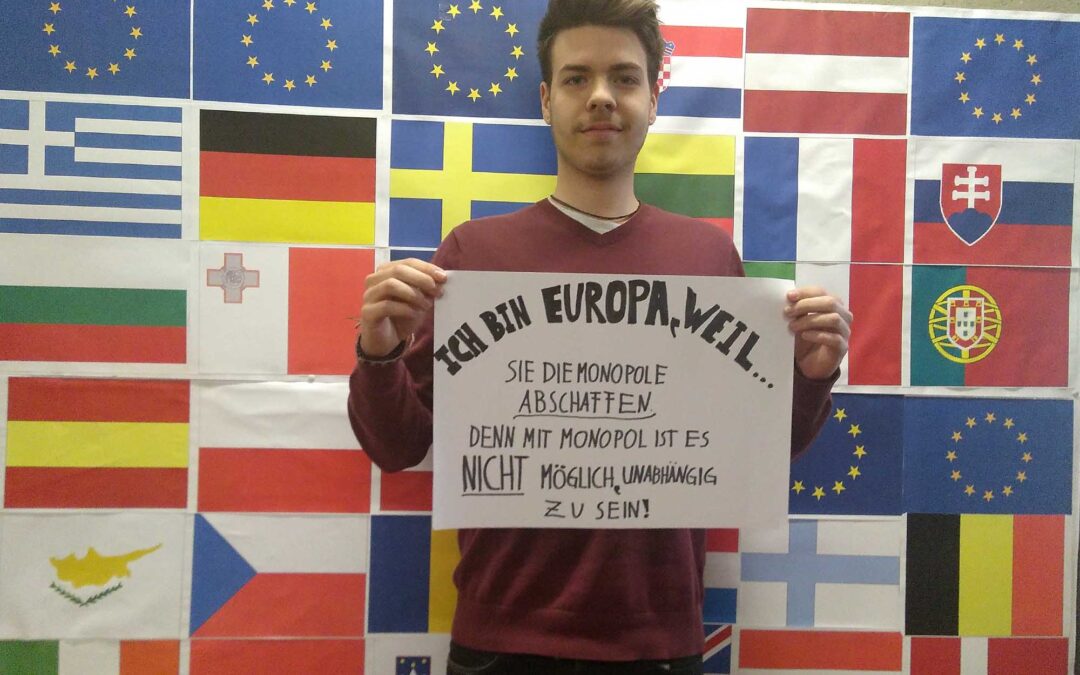 ICH BIN EUROPA, WEIL...
SIE DIE MONOPOLE
ABSCHAFFEN.
DENN MIT MONOPOL IST ES
NICHT MÖGLICH, UNABHÄNGIG
ZU SEIN!